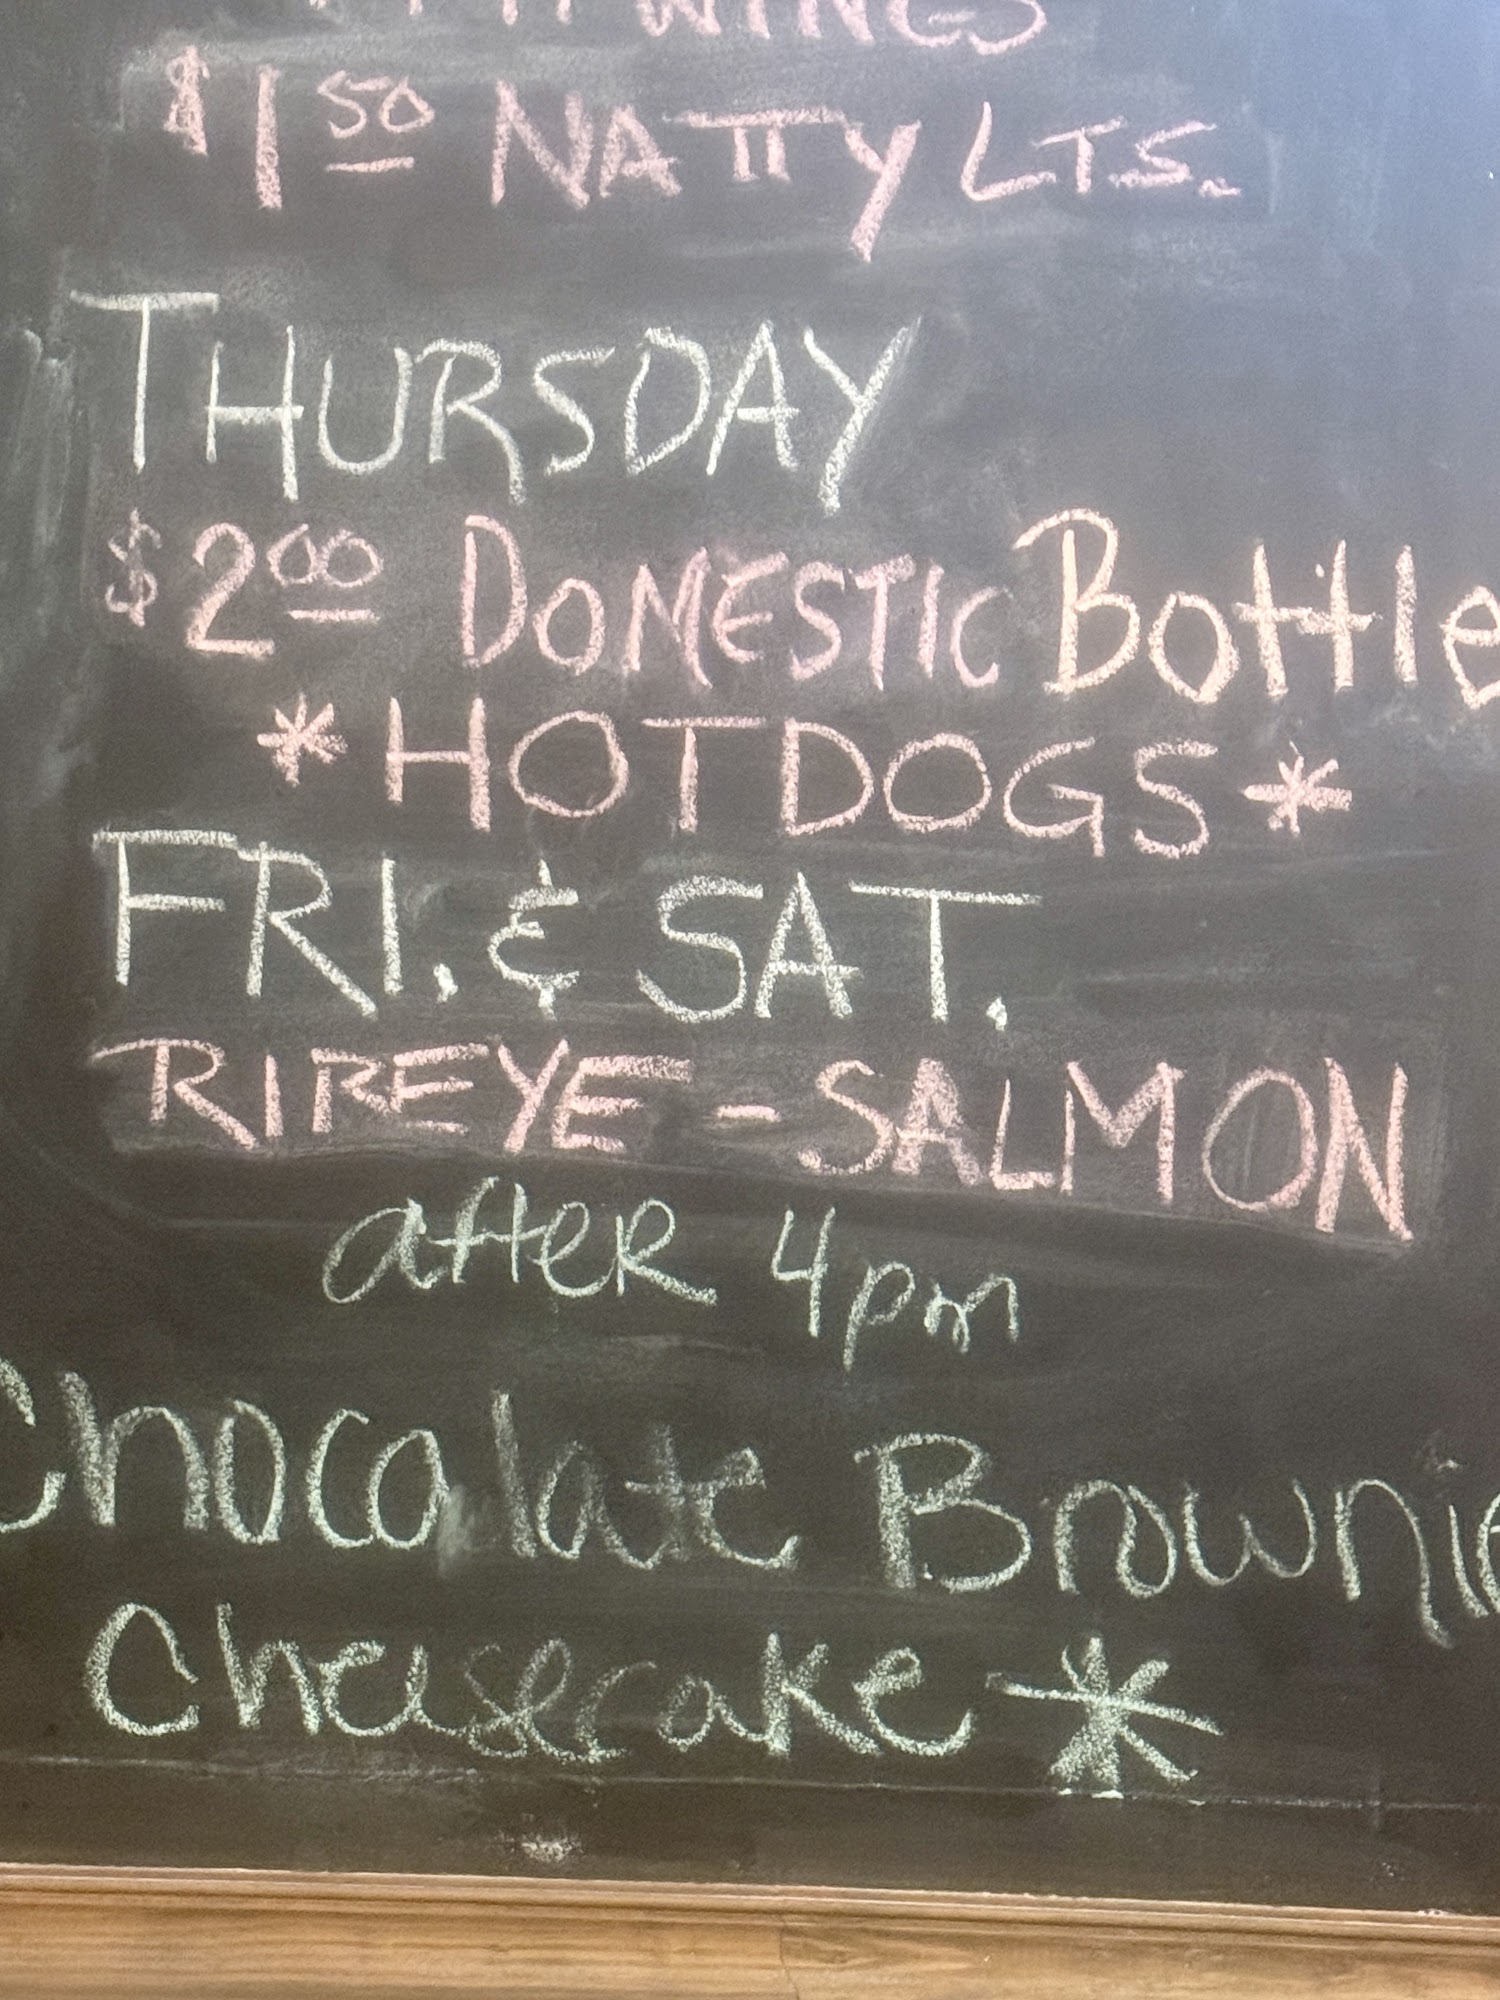 WINGS
$1.50 NATTY LTS.
THURSDAY
$2.00 DOMESTIC Bottle
*HOTDOGS*
FRI. & SAT.
RIBEYE - SALMON
after 4pm
Chocolate Brownie
Cheesecake *